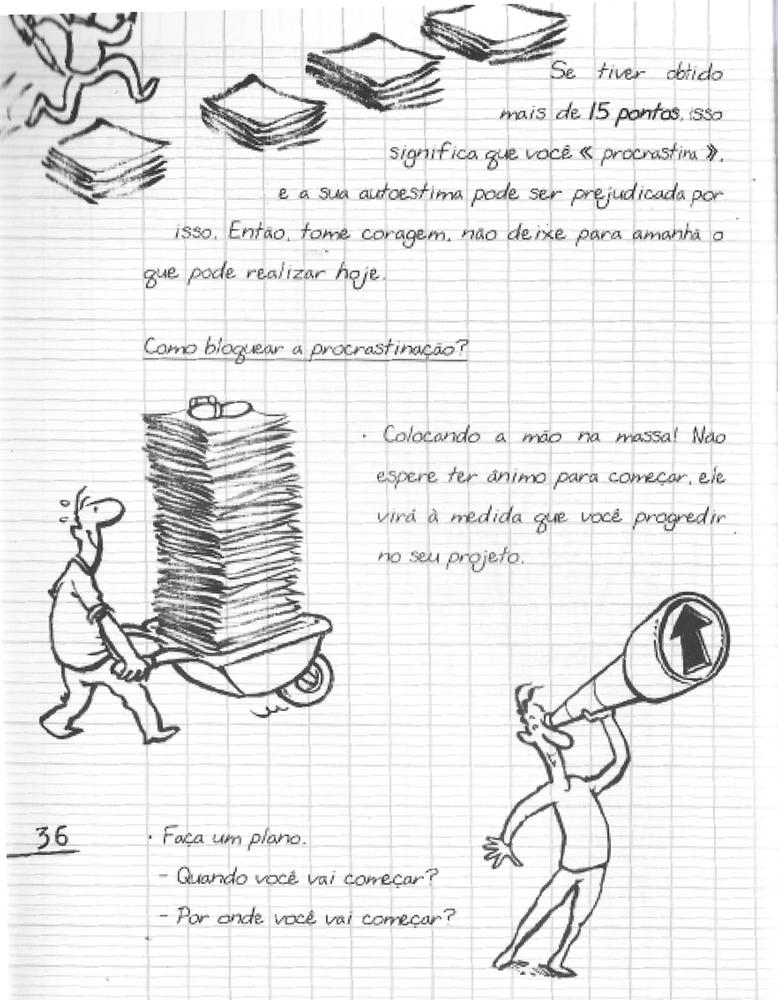 Se tiver obtido
mais de 15 pontos, isso
significa que você « procrastina »,
e a sua autoestima pode ser prejudicada por
isso. Então, tome coragem, não deixe para amanhã o
que pode realizar hoje.
Como bloquear a procrastinação?
· Colocando a mão na massa! Não
espere ter ânimo para começar, ele
virá à medida que você progredir
no seu projeto.
36
· Faça um plano.
- Quando você vai começar?
- Por onde você vai começar?